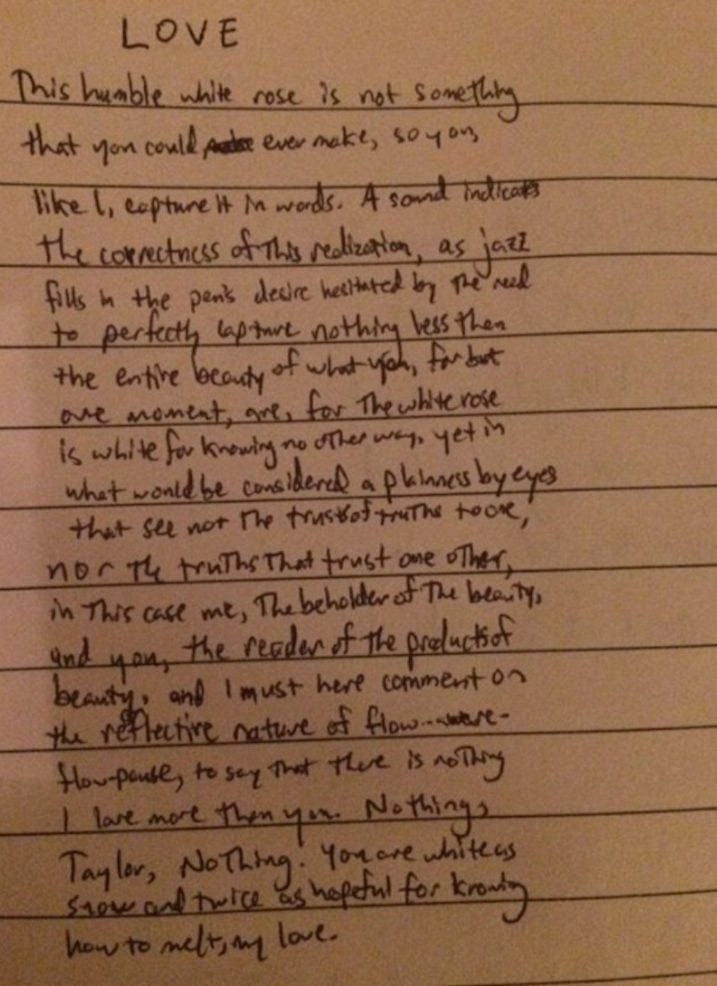 LOVE
This humble white rose is not something
that you could ever make, so you,
like I, capture it in words. A sound indicates
the correctness of this realization, as jazz
fills in the pen's desire hesitated by the need
to perfectly capture nothing less then
the entire beauty of what you, for but
one moment, are, for the white rose
is white for knowing no other way, yet in
what would be considered a plainness by eyes
that see not the trust of truths to one,
nor the truths that trust one other,
in this case me, the beholder of the beauty,
and you, the reader of the products of
beauty, and I must here comment on
the reflective nature of flow--
flow-pause, to say that there is nothing
I love more then you. Nothing,
Taylor, Nothing. You are white as
snow and twice as hopeful for knowing
how to melt, my love.